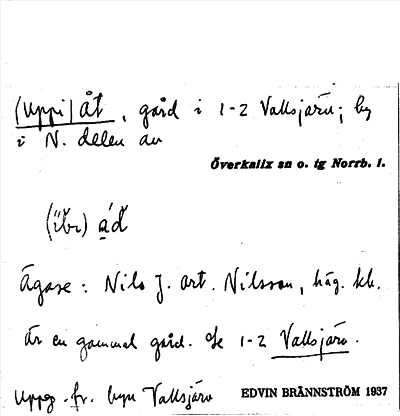 (Uppi) åt, gård i 1-2 Vallsjärv; by
i N. delen av
Överkalix sn o. tg Norrb. l.
(ĭbɩ) ád
Ägare: Nils J. art. Nilsson, häg. kl.
Är en gammal gård. Se 1-2 Vallsjärv.
Uppg. fr. byn Vallsjärv
EDVIN BRÄNNSTRÖM 1937